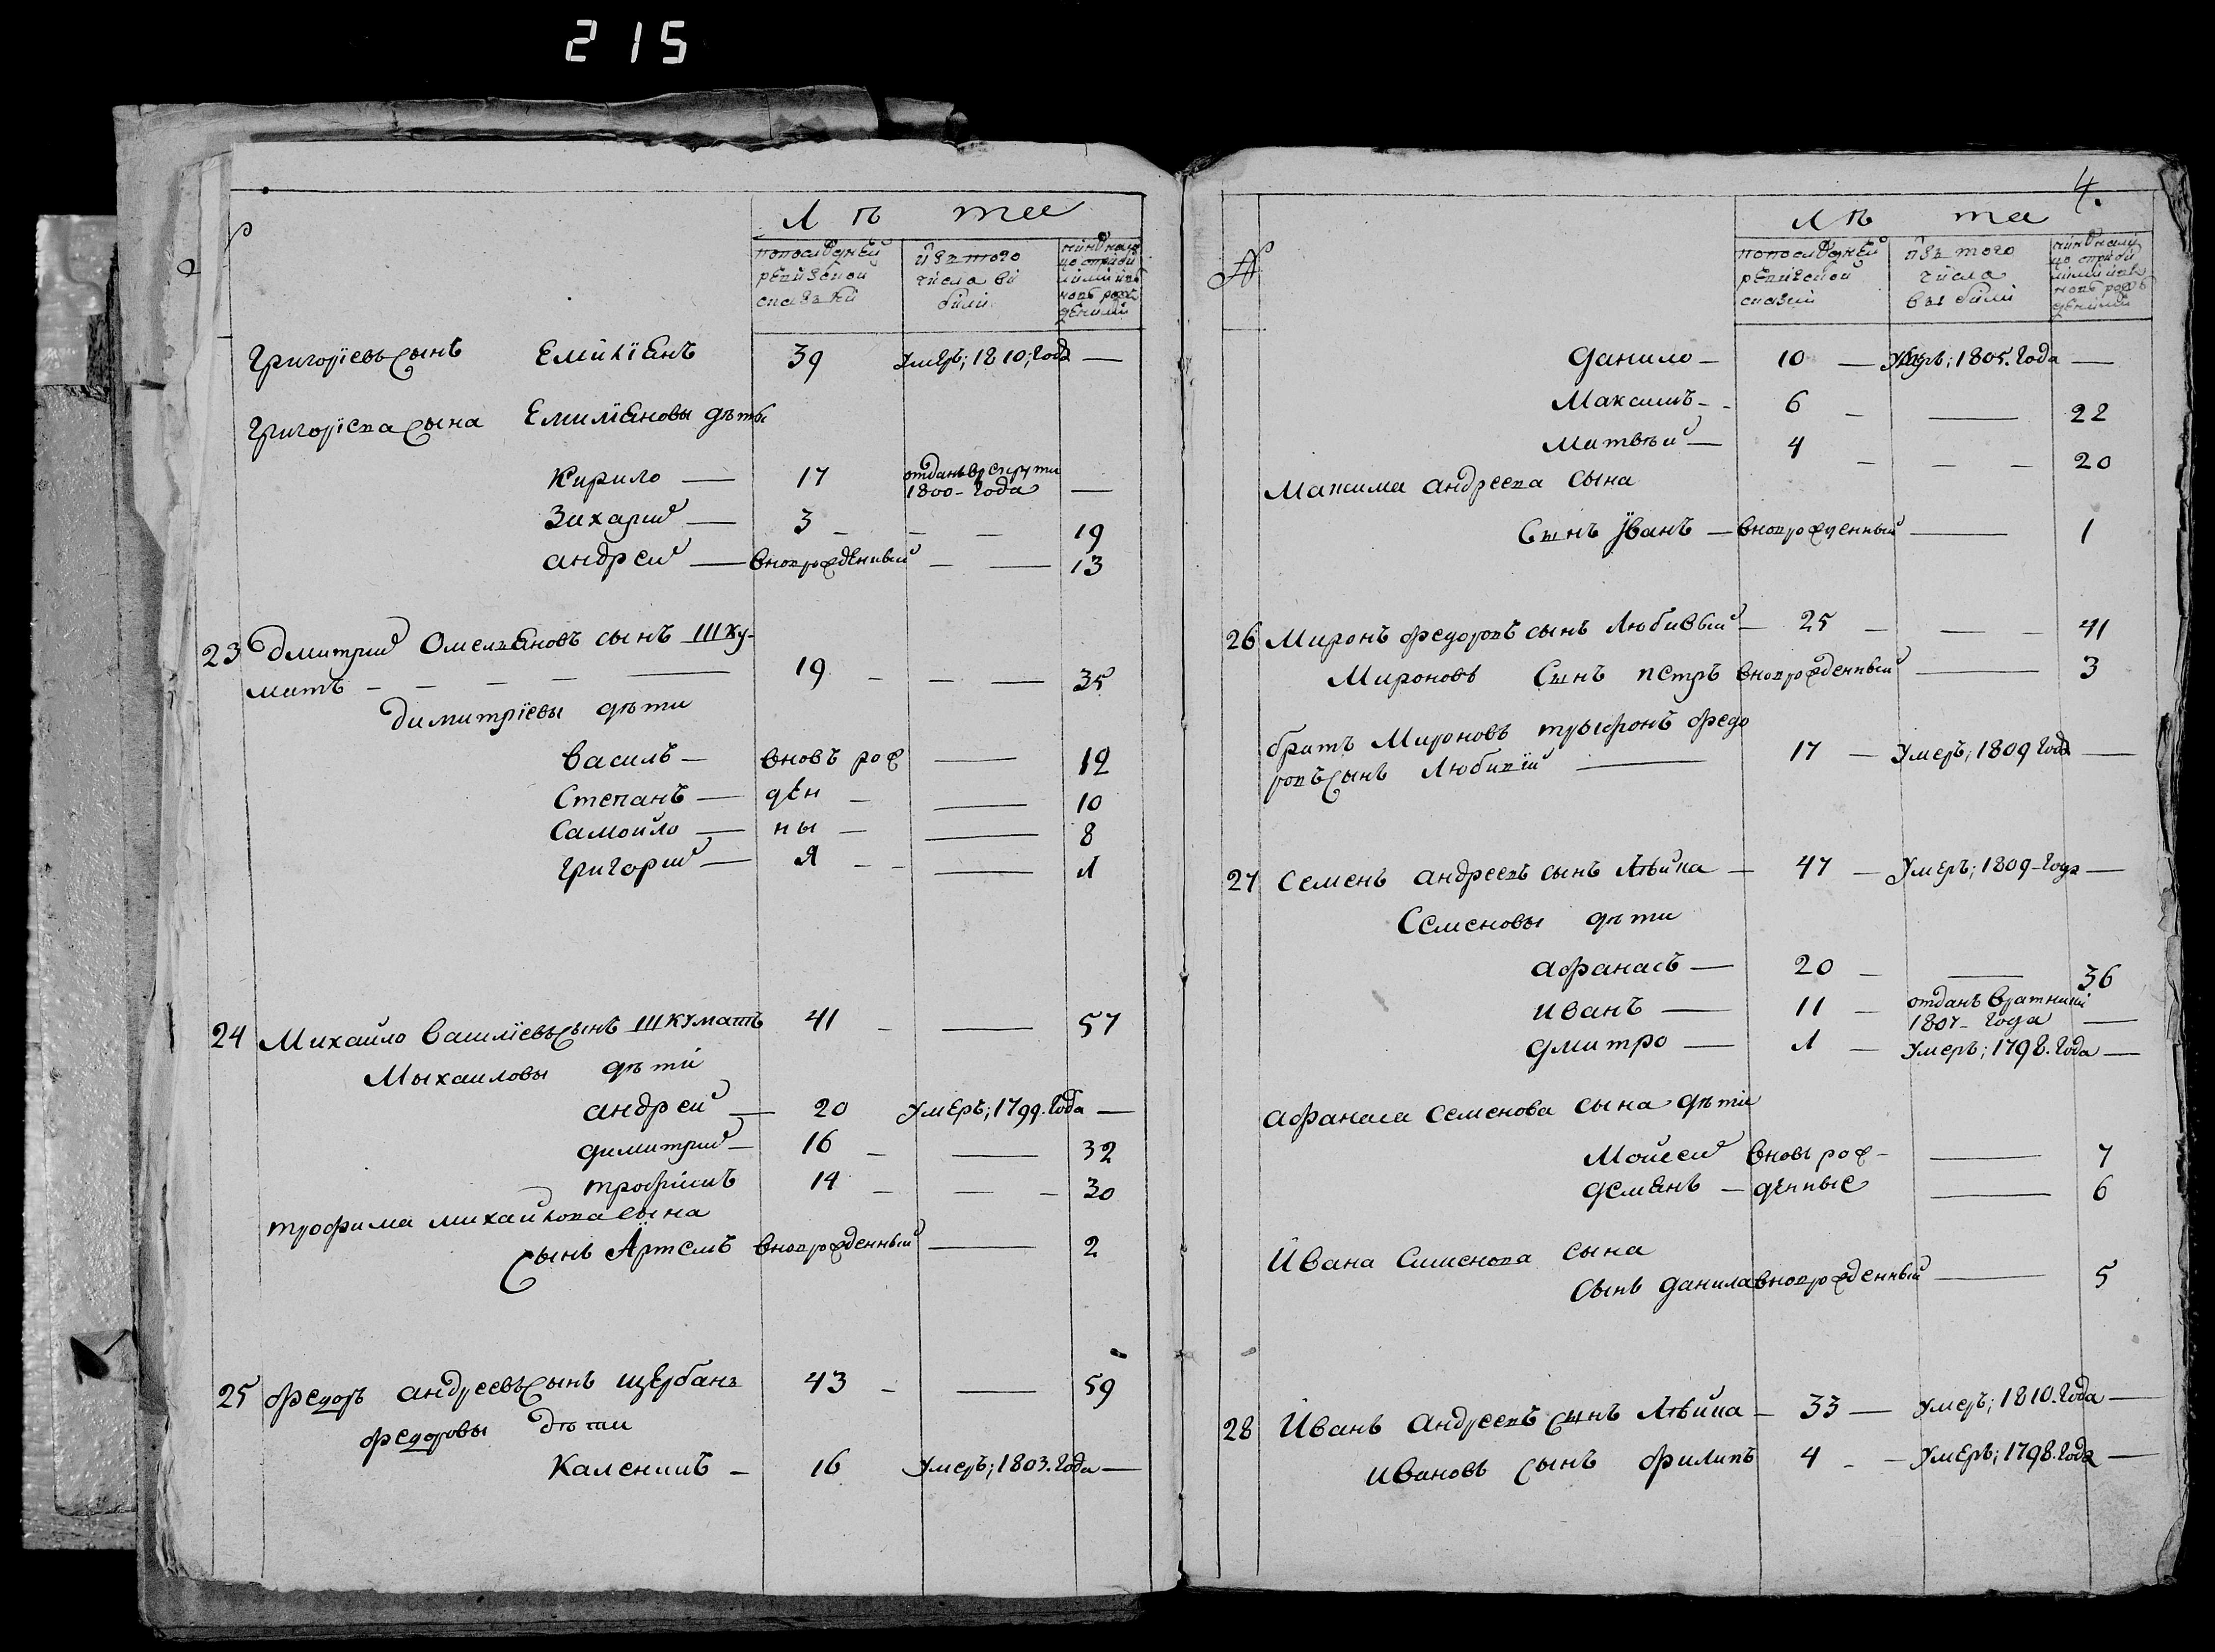 215
Лѣ та
№
попослѣдней ревизской сказки
изъ того числа вы были
Григорїевъ сынъ Емилїянъ 39 Умеръ; 1810; Года —
Григорїева сына Емилїяновы дѣты
Кирило — 17 отданъ в рекруты
1800- Года —
Захарий — 3 - - — 19
андрей — вноврожденный - — 13
23 Дмитрий Омельяновъ сынъ Шку-
матъ - - - - — 19 - - — 35
Димитрїевы дѣти
василь — вновъ рож — 12
Степанъ — ден - — 10
Самойло — ны - — 8
Григорий — я - - — 1
24 Михайло василїевъ сынъ Шкуматъ 41 - — 57
Мыхаиловы дѣти
андрей — 20 Умеръ; 1799. Года —
димитрий — 16 - — 32
трофимъ 14 - — - 30
трофима михайлова сына
Сынъ Артемъ вноврожденный — 2
25 федоръ андреевъ сынъ щербанъ 43 - — 59
федоровы дѣти
Каленикъ - 16 Умеръ; 1803. Года —
4.
Лѣ та
№
попослѣдней ревизской сказки
изъ того числа вы были
Данило - 10 — Умеръ; 1805. Года —
Максимъ - - 6 - — 22
Матвѣй — 4 - - - 20
Максима андреева сына
Сынъ Иванъ — вноврожденный — 1
26 Миронъ федоровъ сынъ Любивый — 25 - — - 41
Мироновъ Сынъ петръ вноврожденный — 3
братъ Мироновъ трыфонъ федо
ровъ сынъ Любивїй — 17 — Умеръ; 1809 Года —
27 Семенъ андреевъ сынъ — 47 — Умеръ; 1809- Года —
Семеновы дѣти
афанасъ — 20 - — 36
иванъ — 11 - отданъ вратники
1807- Года —
дмитро — 1 — Умеръ; 1798. Года —
афанаса семенова сына дѣти
Мойсей вновь рож- — 7
демянъ — денные — 6
Ивана Семенова сына
Сынъ данила вноврожденный — 5
28 Иванъ андреевъ сынъ — 33 — Умеръ; 1810. Года —
ивановъ сынъ филипъ 4 - — Умеръ; 1798. Года —